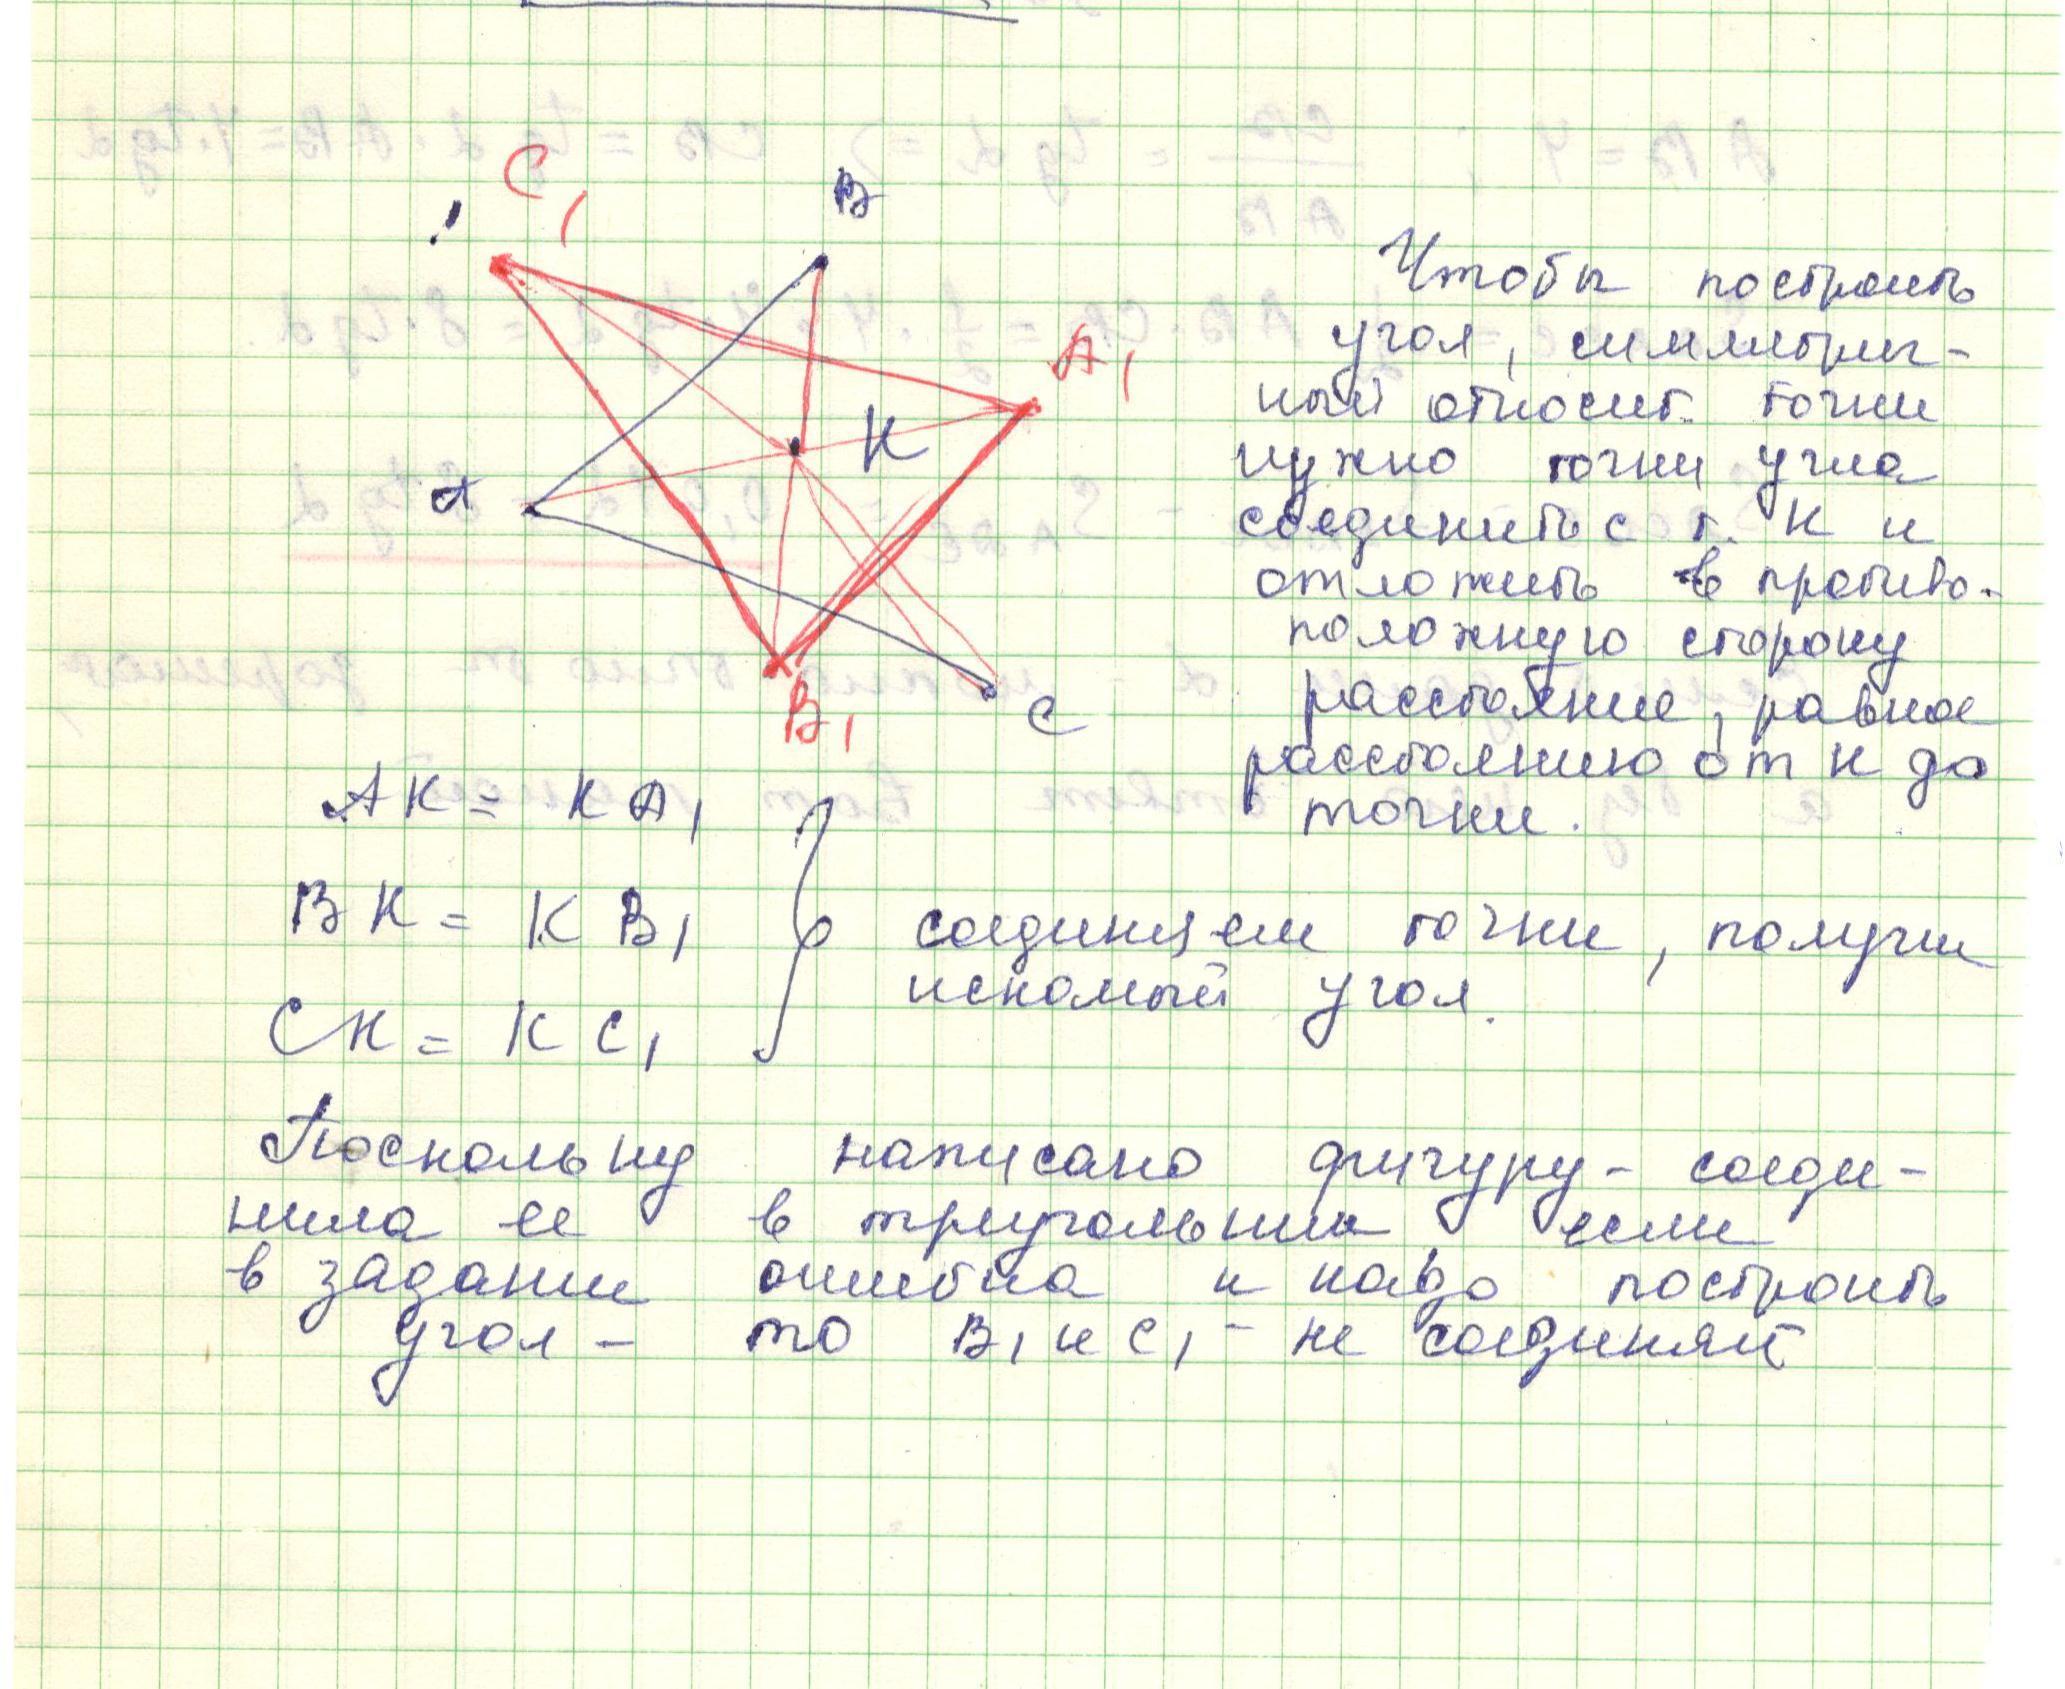 C₁
B
A₁
K
A
B₁
C
Чтобы построить
угол, симметрич-
ный относит. точки
нужно точки угла
соединить с т. К и
отложить в противо-
положную сторону
расстояние, равное
расстоянию от К до
точки.
AK = KA₁
BK = KB₁
CK = KC₁
соединяем точки, получи
искомый угол.
Поскольку написано фигуру - соеди-
нила ее в треугольник если
в задании ошибка и надо построить
угол - то B₁ и C₁ - не соединяй